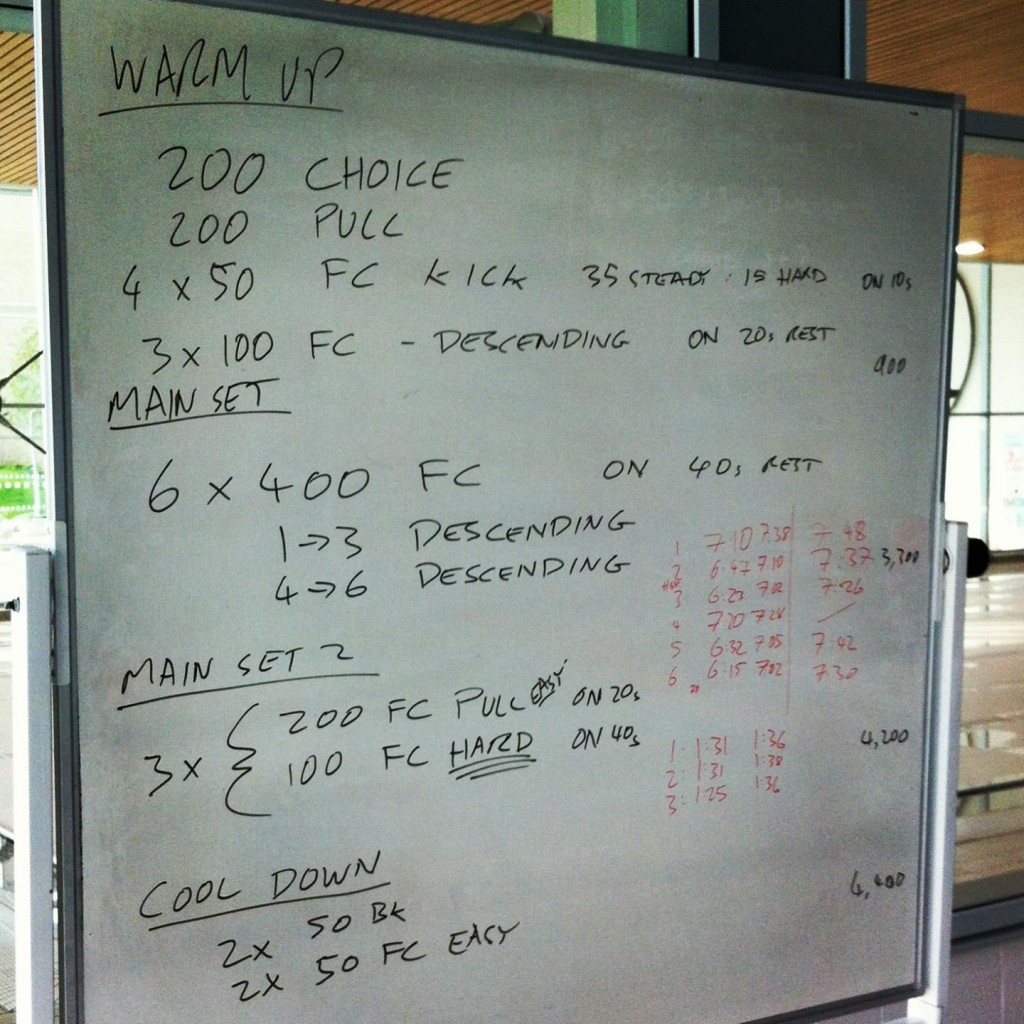 WARM UP
200 CHOICE
200 PULL
4 x 50 FC KICK 35 STEADY : 15 HARD ON 10s
3 x 100 FC - DESCENDING ON 20s REST
900
MAIN SET
6 x 400 FC ON 40s REST
1 → 3 DESCENDING
4 → 6 DESCENDING
1 7.10 7.38 7.48
2 6.47 7.10 7.37 3,300
3 6.23 7.02 7.26
4 7.20 7.28
5 6.32 7.05 7.42
6 6.15 7.02 7.30
MAIN SET 2
3 x { 200 FC PULL EASY ON 20s
100 FC HARD ON 40s
4,200
1. 1:31 1:36
2: 1:31 1:38
3: 1:25 1:36
COOL DOWN
4,400
2x 50 BK
2x 50 FC EASY